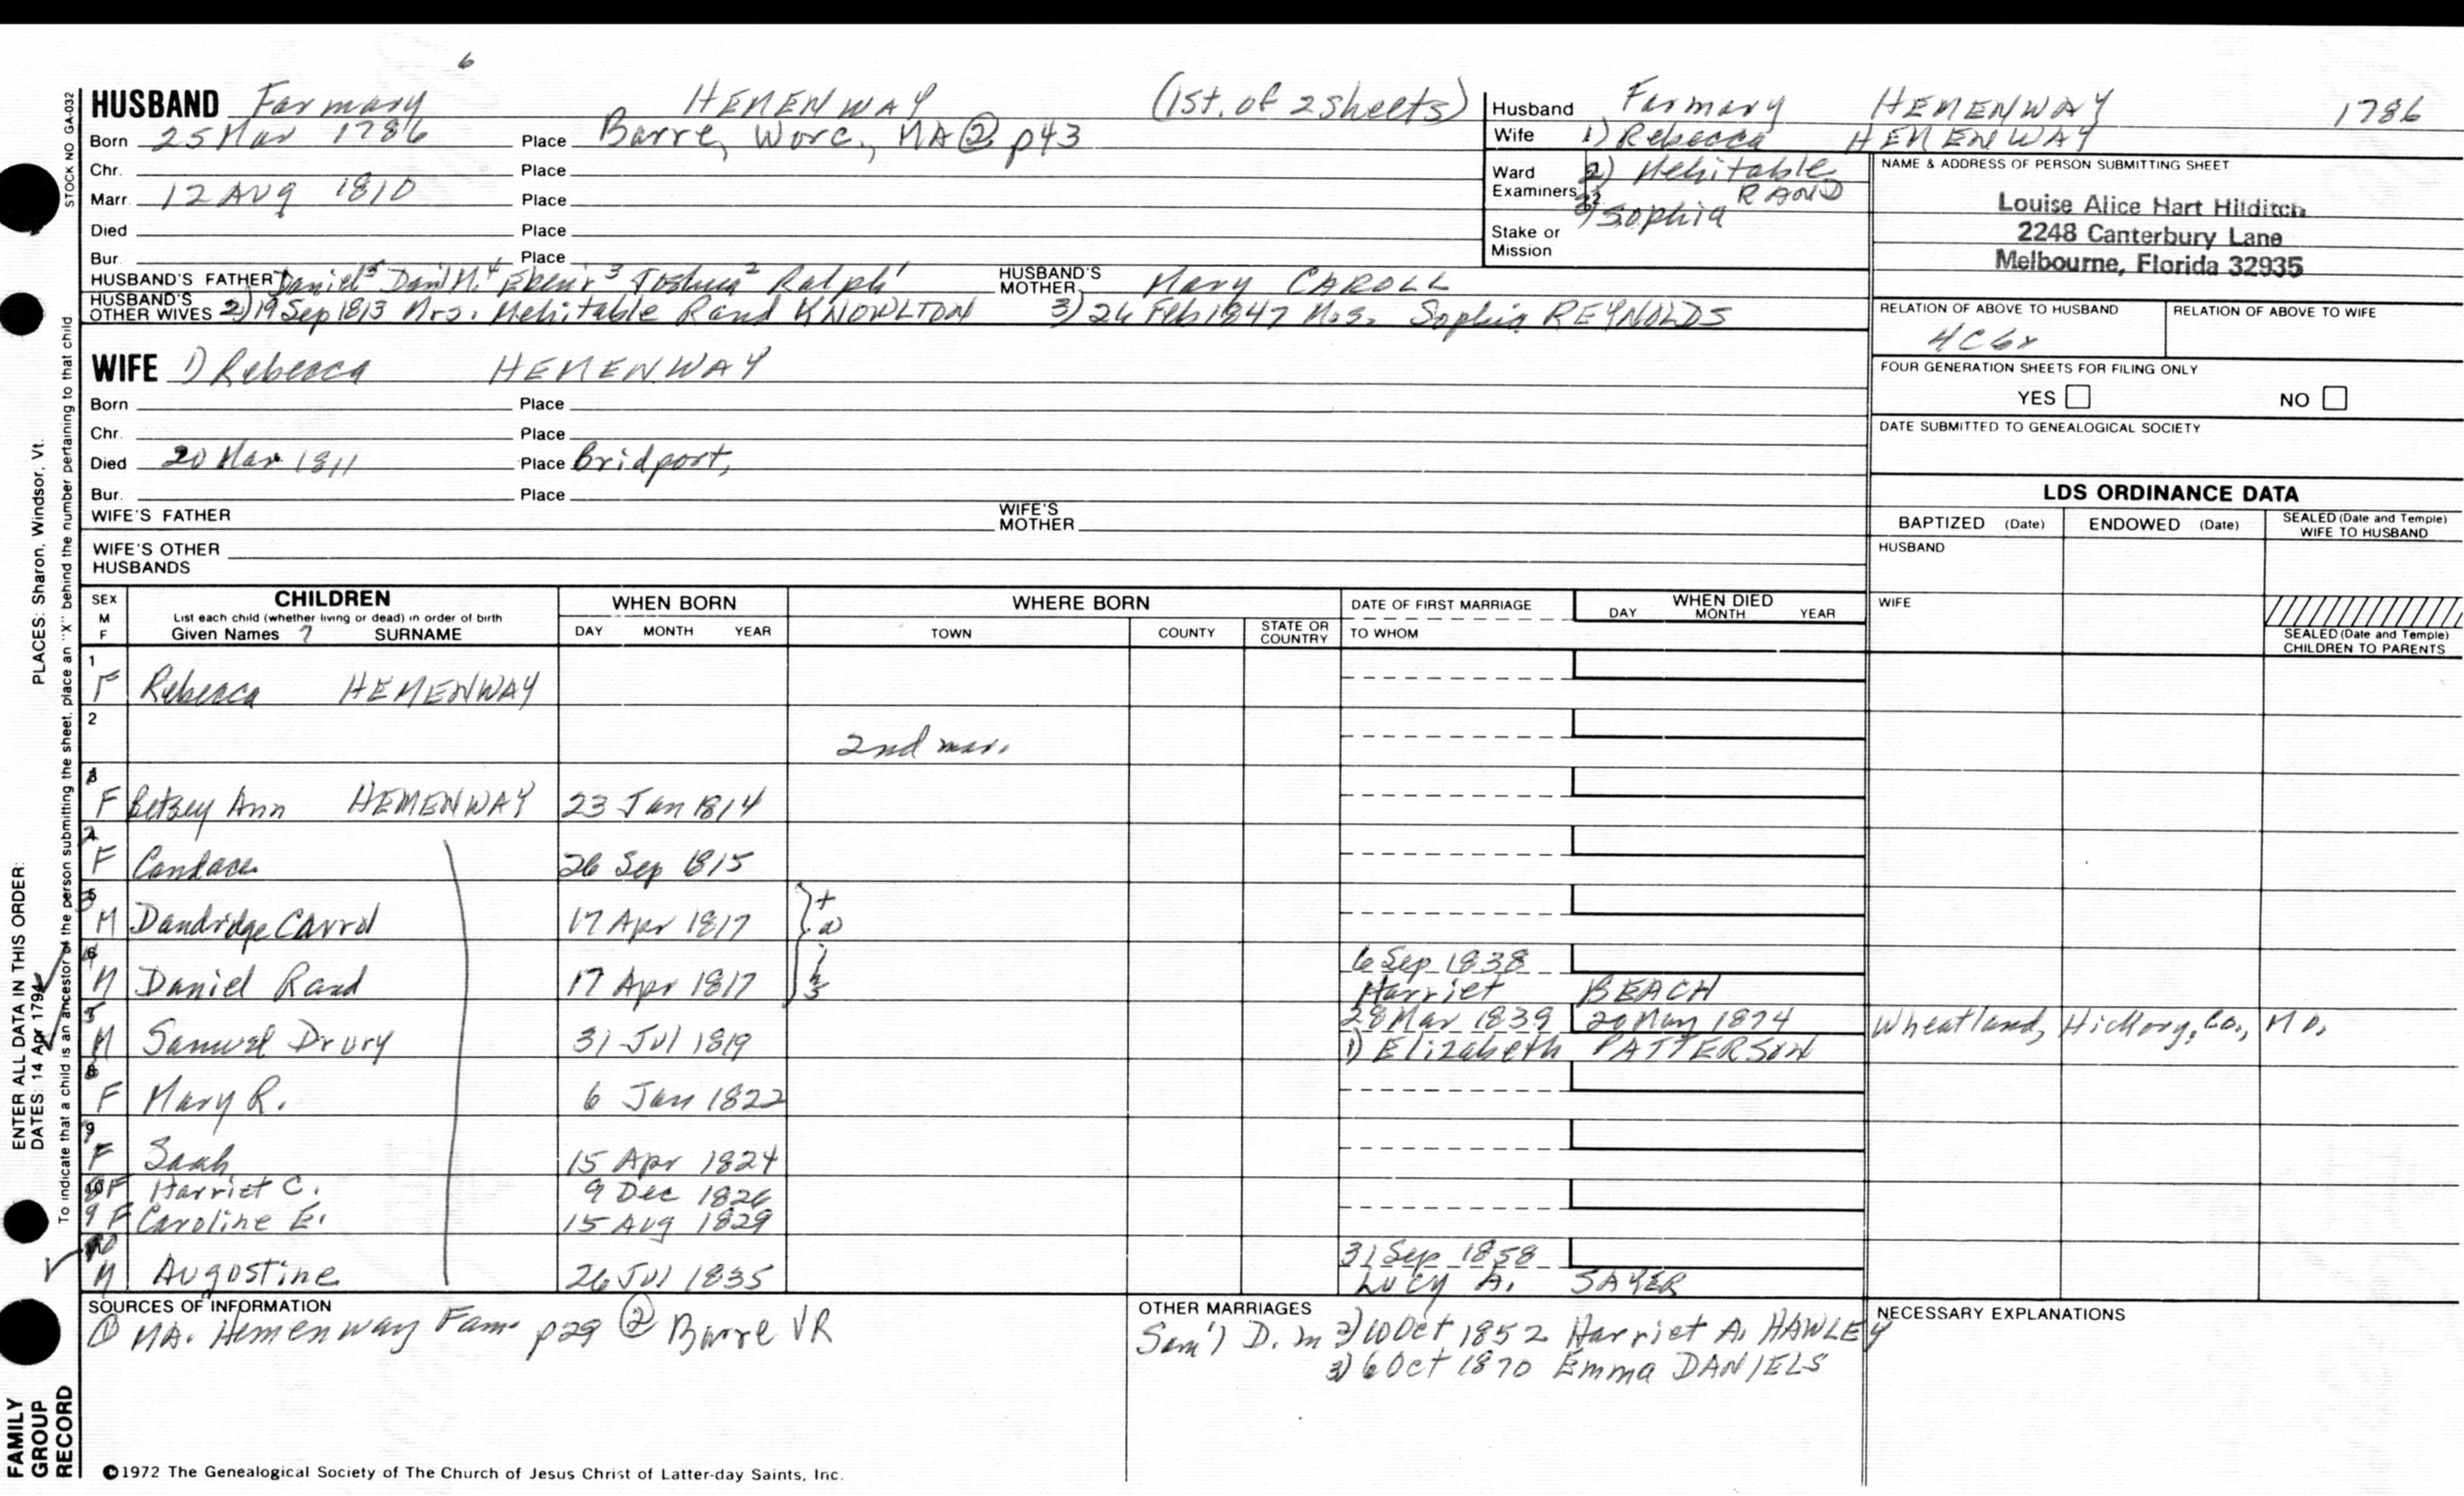 6
HUSBAND Farmary HEMENWAY (1st. of 2 sheets)
Born 25 Mar 1786 Place Barre, Worc., MA ② p43
Chr. Place
Marr. 12 AUg 1810 Place
Died Place
Bur. Place
HUSBAND'S FATHER Daniel⁵ Dan'l M.⁴ Eben'r³ Joshua² Ralph¹ HUSBAND'S MOTHER Mary CAROLL
HUSBAND'S OTHER WIVES 2) 19 Sep 1813 Mrs. Mehitable Rand KNOWLTON 3) 26 Feb 1847 Mrs. Sophia REYNOLDS
WIFE 1) Rebecca HEMENWAY
Born Place
Chr. Place
Died 20 Mar 1811 Place Bridport,
Bur. Place
WIFE'S FATHER WIFE'S MOTHER
WIFE'S OTHER HUSBANDS
Husband Farmary HEMENWAY 1786
Wife 1) Rebecca HEMENWAY
Ward 2) Mehitable
Examiners: RAND
3) Sophia
Stake or Mission
NAME & ADDRESS OF PERSON SUBMITTING SHEET
Louise Alice Hart Hilditch
2248 Canterbury Lane
Melbourne, Florida 32935
RELATION OF ABOVE TO HUSBAND RELATION OF ABOVE TO WIFE
4C6r
FOUR GENERATION SHEETS FOR FILING ONLY
YES NO
DATE SUBMITTED TO GENEALOGICAL SOCIETY
LDS ORDINANCE DATA
BAPTIZED (Date) ENDOWED (Date) SEALED (Date and Temple) WIFE TO HUSBAND
HUSBAND
WIFE
SEALED (Date and Temple) CHILDREN TO PARENTS
SEX M F CHILDREN WHEN BORN WHERE BORN DATE OF FIRST MARRIAGE WHEN DIED
List each child (whether living or dead) in order of birth
Given Names 7 SURNAME DAY MONTH YEAR TOWN COUNTY STATE OR COUNTRY TO WHOM DAY MONTH YEAR
1 F Rebecca HEMENWAY
2 2nd mar.
F Betsey Ann HEMENWAY 23 Jan 1814
2 F Candace 26 Sep 1815
M Dandridge Carrol 17 Apr 1817
4 M Daniel Rand 17 Apr 1817 6 Sep 1838 Harriet BEACH
5 M Samuel Drury 31 Jul 1819 28 Mar 1839 20 May 1874 Wheatland, Hickory, Co., MO,
1) Elizabeth PATTERSON
F Mary R. 6 Jan 1822
F Saah 15 Apr 1824
8 F Harriet C. 9 Dec 1826
9 F Caroline E. 15 AUg 1829
10 M Augostine 26 Jul 1835 31 Sep 1858 Lucy A. SAYER
SOURCES OF INFORMATION
① MA. Hemenway Fam. p29 ② Barre VR
OTHER MARRIAGES
Sam'l D. m 2) 10 Oct 1852 Harriet A. HAWLEY
3) 6 Oct 1870 Emma DANIELS
NECESSARY EXPLANATIONS
©1972 The Genealogical Society of The Church of Jesus Christ of Latter-day Saints, Inc.
STOCK NO GA-032
PLACES: Sharon, Windsor, Vt.
ENTER ALL DATA IN THIS ORDER:
DATES: 14 Apr 1794
To indicate that a child is an ancestor of the person submitting the sheet, place an "X" behind the number pertaining to that child
FAMILY
GROUP
RECORD